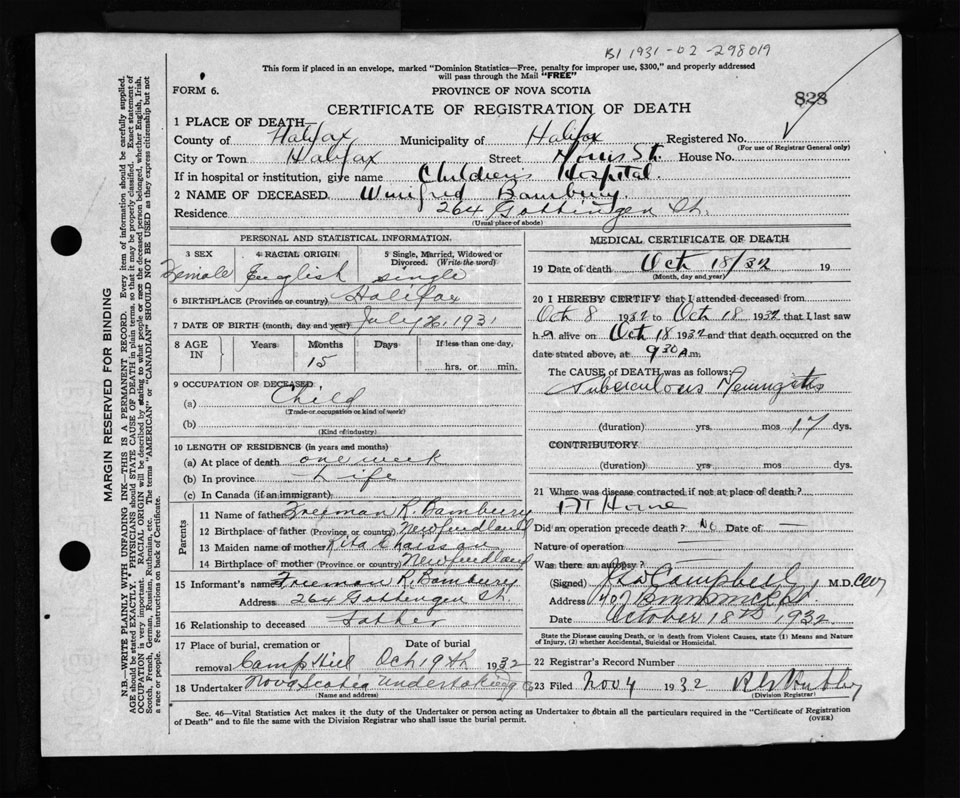 B1 1931-02-298019
This form if placed in an envelope, marked "Dominion Statistics—Free, penalty for improper use, $300," and properly addressed
will pass through the Mail "FREE"
FORM 6.
PROVINCE OF NOVA SCOTIA
828
CERTIFICATE OF REGISTRATION OF DEATH
1 PLACE OF DEATH
County of Halifax Municipality of Halifax Registered No.
(For use of Registrar General only)
City or Town Halifax Street Morris St. House No.
If in hospital or institution, give name Children's Hospital.
2 NAME OF DECEASED. Winifred Bambury.
Residence 264 Gottingen St.
(Usual place of abode)
PERSONAL AND STATISTICAL INFORMATION.
3 SEX 4 RACIAL ORIGIN 5 Single, Married, Widowed or Divorced. (Write the word)
Female English single
6 BIRTHPLACE (Province or country) Halifax
7 DATE OF BIRTH (month, day and year) July 26, 1931
8 AGE IN Years Months Days If less than one day,
15 hrs. or min.
9 OCCUPATION OF DECEASED,
(a) Child
(Trade or occupation or kind of work)
(b)
(Kind of industry)
10 LENGTH OF RESIDENCE (in years and months)
(a) At place of death one week
(b) In province Life
(c) In Canada (if an immigrant)
Parents
11 Name of father Freeman R. Bambury
12 Birthplace of father (Province or country) Newfoundland
13 Maiden name of mother Rita
14 Birthplace of mother (Province or country) Newfundland
15 Informant's name Freeman R. Bambury
Address 264 Gottengen St.
16 Relationship to deceased Father
17 Place of burial, cremation or Date of burial
removal Camp Hill Oct 19th 1932
18 Undertaker Nova Scotia Undertaking Co
(Name and address)
MEDICAL CERTIFICATE OF DEATH
19 Date of death Oct 18/32 19
(Month, day and year)
20 I HEREBY CERTIFY that I attended deceased from
Oct 8 1932 to Oct 18 1932 that I last saw
her alive on Oct 18 1932 and that death occurred on the
date stated above, at 9 30 A.m.
The CAUSE OF DEATH was as follows:
Tuberculous Meningitis
(duration) yrs. mos 17 dys.
CONTRIBUTORY
(duration) yrs. mos. dys.
21 Where was disease contracted if not at place of death?
AT Home
Did an operation precede death? No Date of —
Nature of operation —
Was there an autopsy?
(Signed) Campbell M.D.
Address 407 Brunswick St
Date October 18th 1932
State the Disease causing Death, or in death from Violent Causes, state (1) Means and Nature
of Injury, (2) whether Accidental, Suicidal or Homicidal.
22 Registrar's Record Number
23 Filed Nov 4 1932
(Division Registrar)
Sec. 46—Vital Statistics Act makes it the duty of the Undertaker or person acting as Undertaker to obtain all the particulars required in the "Certificate of Registration
of Death" and to file the same with the Division Registrar who shall issue the burial permit.
(OVER)
MARGIN RESERVED FOR BINDING
N.B.—WRITE PLAINLY WITH UNFADING INK—THIS IS A PERMANENT RECORD. Every item of information should be carefully supplied.
AGE should be stated EXACTLY. PHYSICIANS should STATE CAUSE OF DEATH in plain terms, so that it may be properly classified. Exact statement of
OCCUPATION is very important. RACIAL ORIGIN will be described by stating to what people or race the deceased person belonged, whether English, Irish,
Scotch, French, German, Russian, Ruthenian, etc. The terms "AMERICAN" or "CANADIAN" SHOULD NOT BE USED as they express citizenship but not
a race or people. See instructions on back of Certificate.